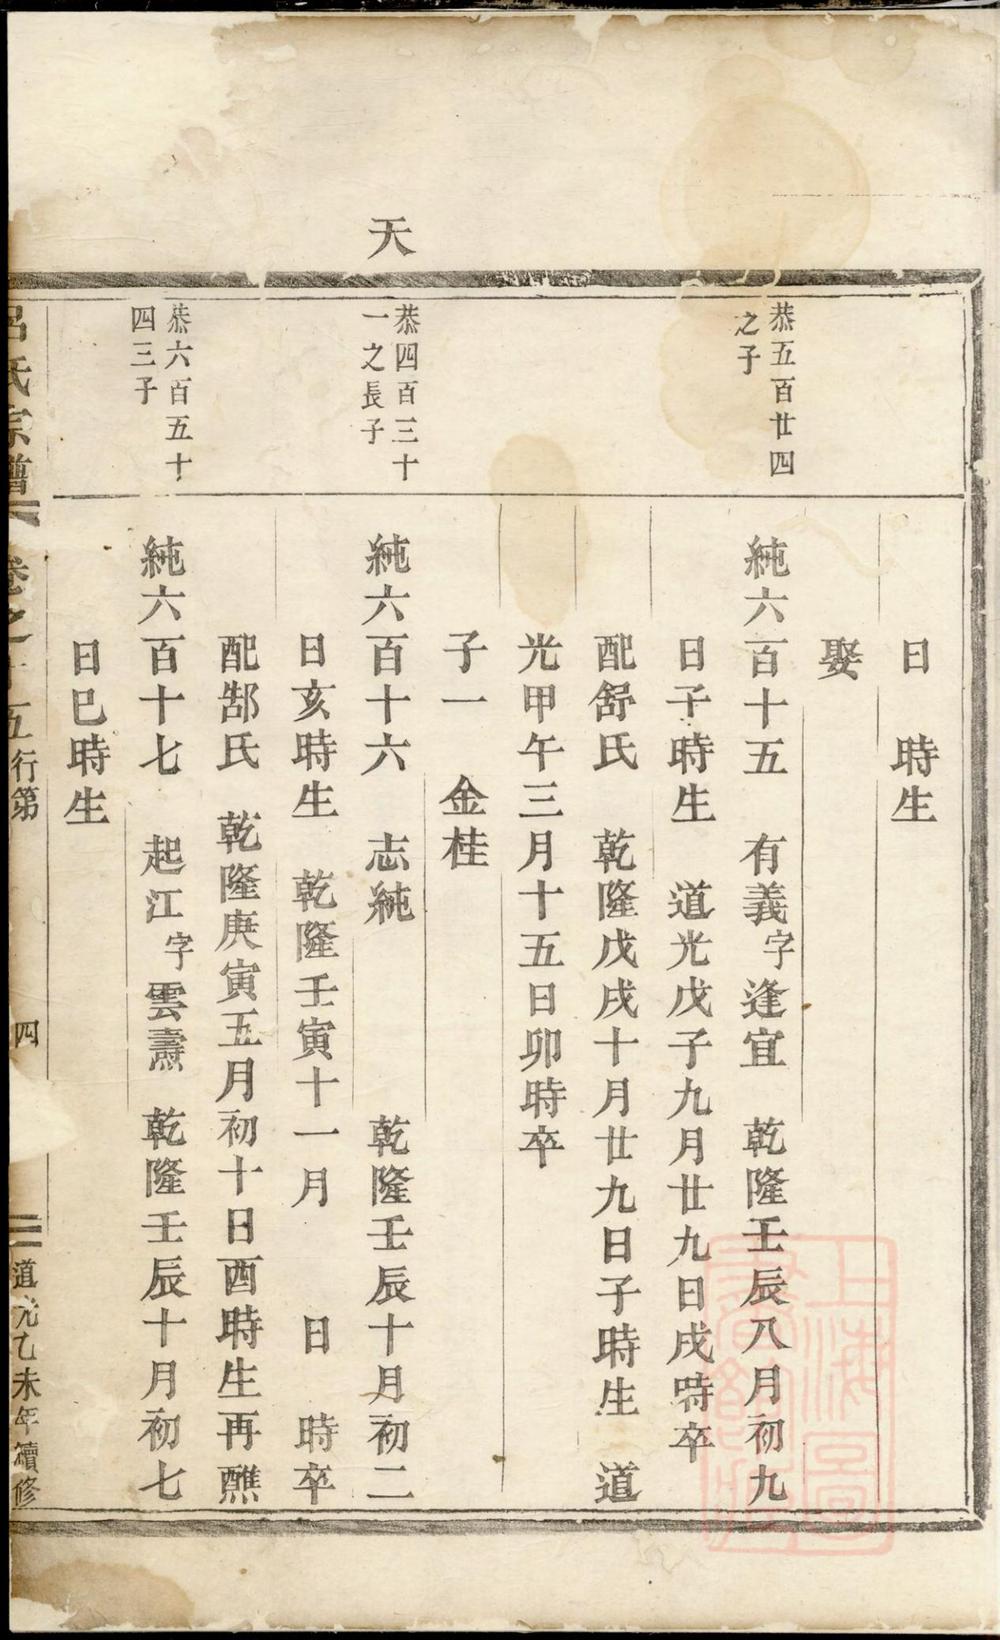 天
日　時生
娶
恭五百廿四
之子
純六百十五　有義字逢宜　乾隆壬辰八月初九
日子時生　道光戊子九月廿九日戌時卒
配舒氏　乾隆戊戌十月廿九日子時生　道
光甲午三月十五日卯時卒
子一　金桂
恭四百三十
一之長子
純六百十六　志純　乾隆壬辰十月初二
日亥時生　乾隆壬寅十一月　日　時卒
配郜氏　乾隆庚寅五月初十日酉時生再醮
恭六百五十
四三子
純六百十七　起江字雲燾　乾隆壬辰十月初七
日巳時生
呂氏宗譜　卷之十五行第　四　道光乙未年續修
上海圖書館藏